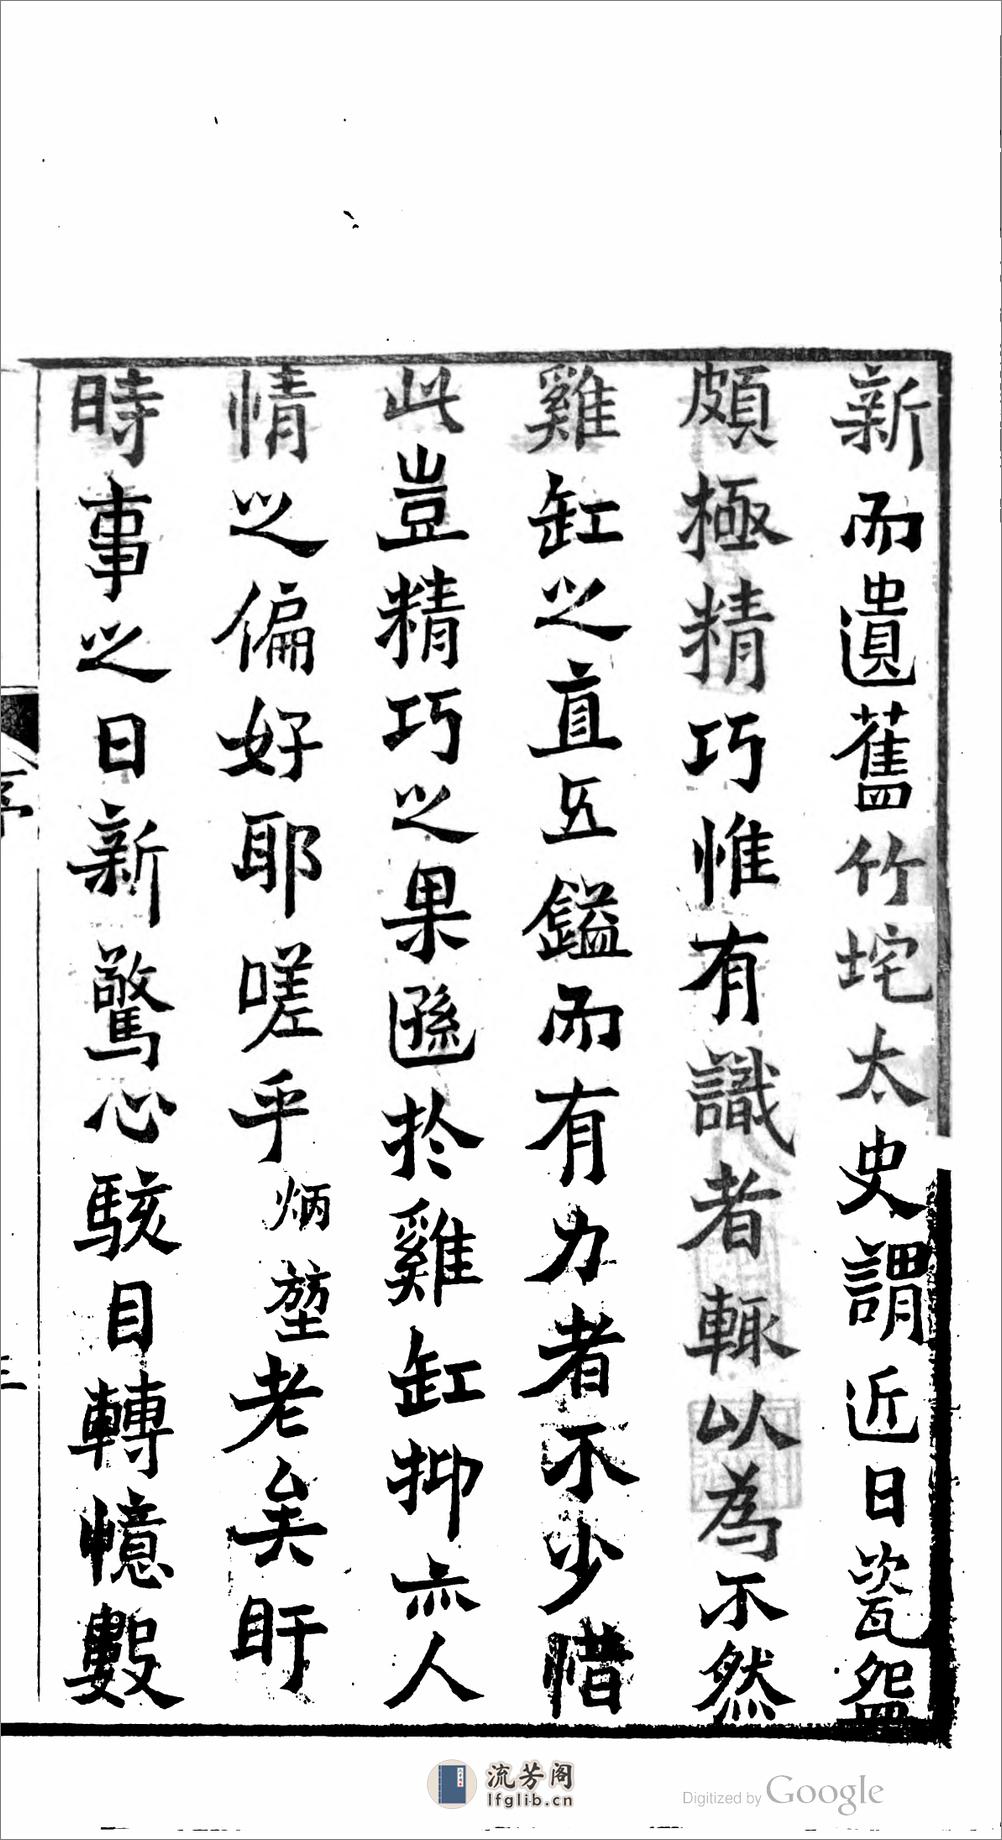 新而遺舊竹垞太史謂近日瓷盌
頗極精巧惟有識者輒以為不然
雞缸之直五鎰而有力者不少惜
此豈精巧之果遜於雞缸抑亦人
情之偏好耶嗟乎炳堃老矣盱
時事之日新驚心駭目轉憶數
序
三
流芳阁
lfglib.cn
Digitized by Google